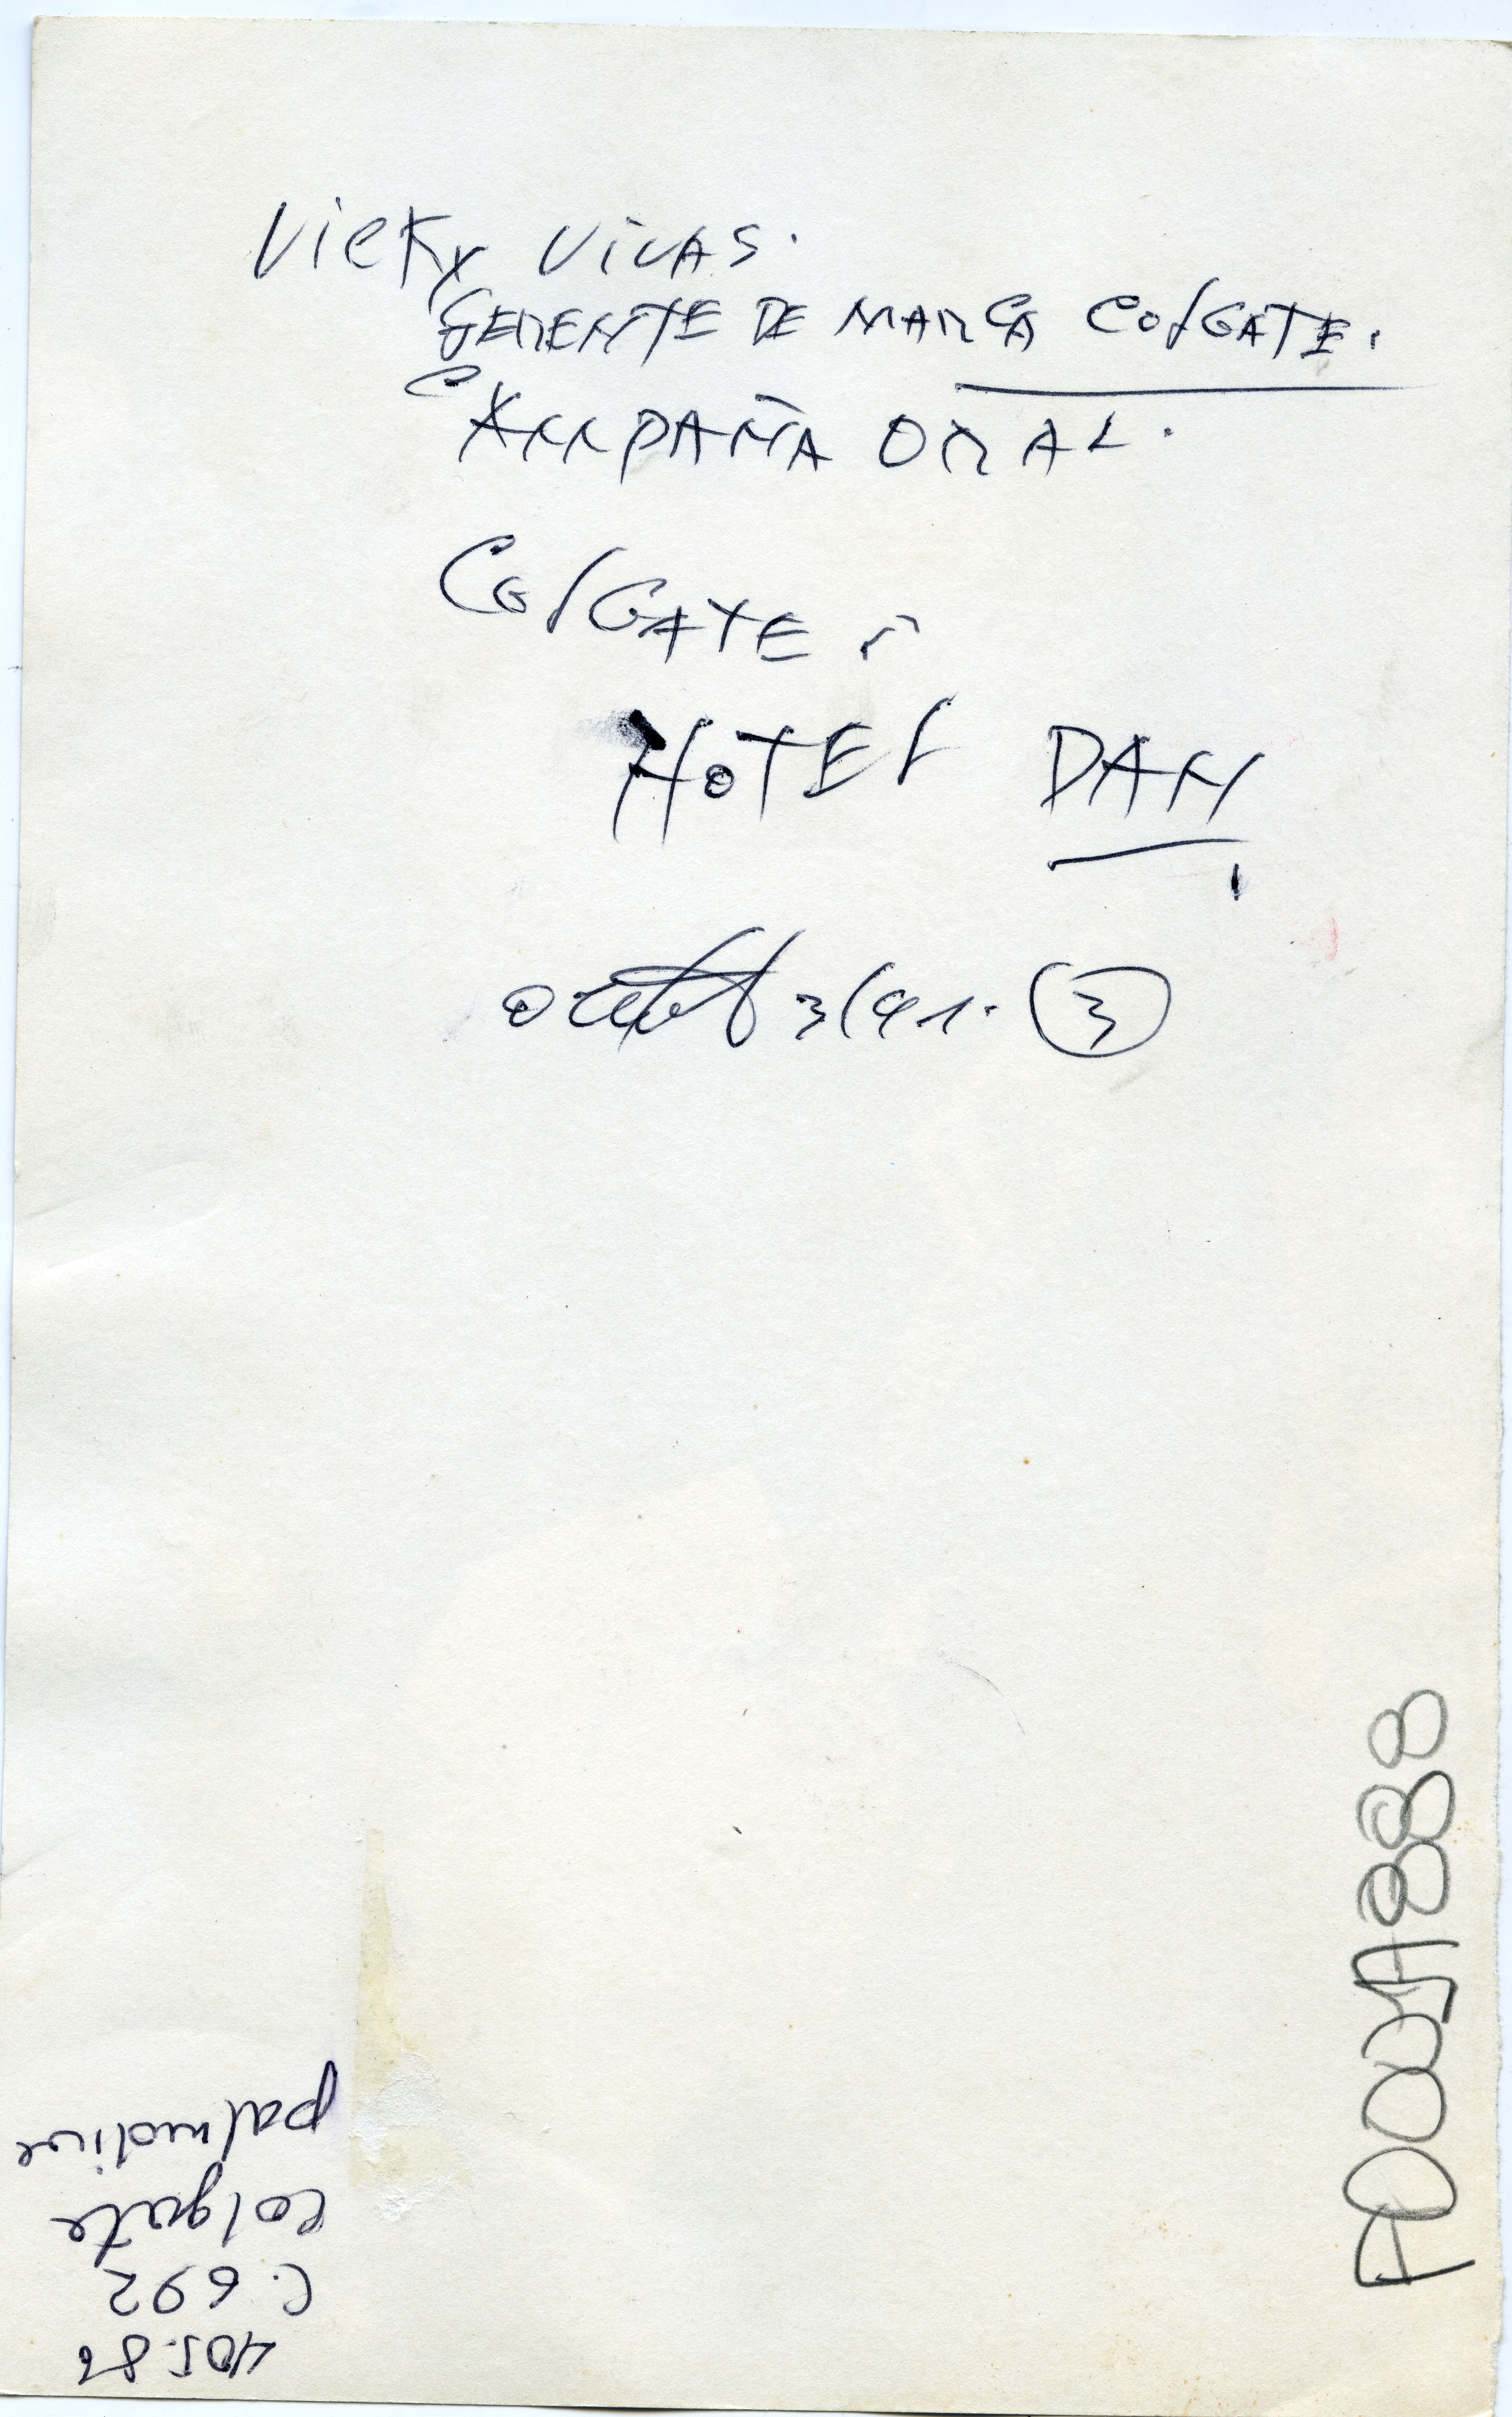 Vicky Vivas.
GERENTE DE MARCA COLGATE.
CAMPAÑA ORAL.
COLGATE
HOTEL DAN
3/91. 3
405.86
C.692
Colgate
palmolive